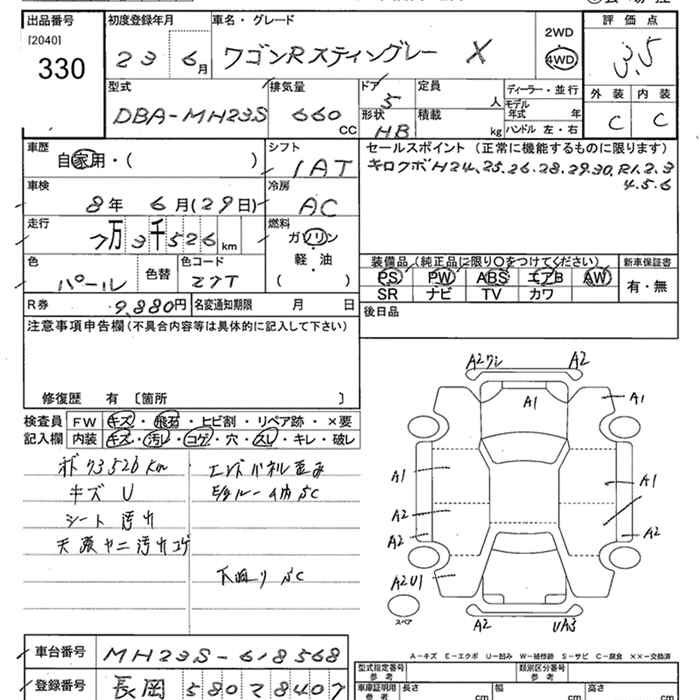 出品番号 初度登録年月 車名・グレード 評価点
[2040]
330 23 6月 ワゴンRスティングレー X 2WD 4WD 3.5
型式 排気量 ドア 定員 ディーラー・並行 外装 内装
DBA-MH23S 660 CC 5 人 モデル年式 年 C C
形状 積載
HB kg ハンドル 左・右
車歴 シフト セールスポイント(正常に機能するものに限ります)
自家用・( ) IAT キロクボH24,25.26.28.29.30.R1.2.3
4.5.6
車検 冷房
8年 6月(29日) AC
走行 燃料
7万3千526km ガソリン
軽・油
( )
装備品(純正品に限り○をつけてください) 新車保証書
色 色替 色コード PS PW ABS エアB AW 有・無
パール Z7T SR ナビ TV カワ
R券 9,880円 名変通知期限 月 日 後日品
注意事項申告欄(不具合内容等は具体的に記入して下さい)
修復歴 有 〔箇所 〕
検査員 FW キズ・飛石・ヒビ割・リペア跡・×要
記入欄 内装 キズ・汚レ・コゲ・穴・スレ・キレ・破レ
73526km
キズ U
シート 汚れ
下廻り SC
A2ワレ A2
A1 A1
A1 A1
A2
A2 A2
A2U1
スペア
A2 UA3
A-キズ E-エクボ U-凹み W-補修跡 S-サビ C-腐食 ××-交換済
車台番号 MH23S-618568
登録番号 長岡 580 2 8407
型式指定番号 参考 類別区分番号 参考
車庫証明用 参考 長さ cm 幅 cm 高さ cm